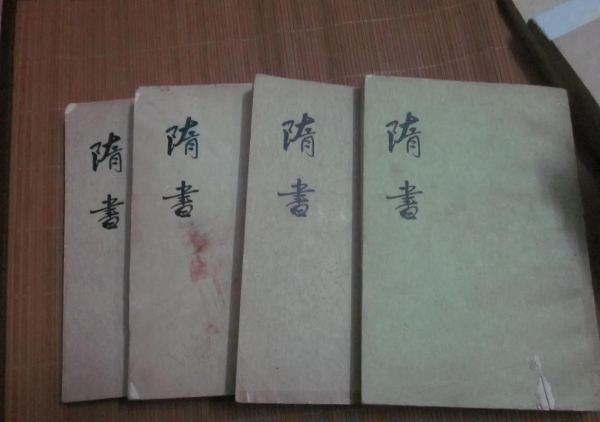 隋書
隋書
隋書
隋書